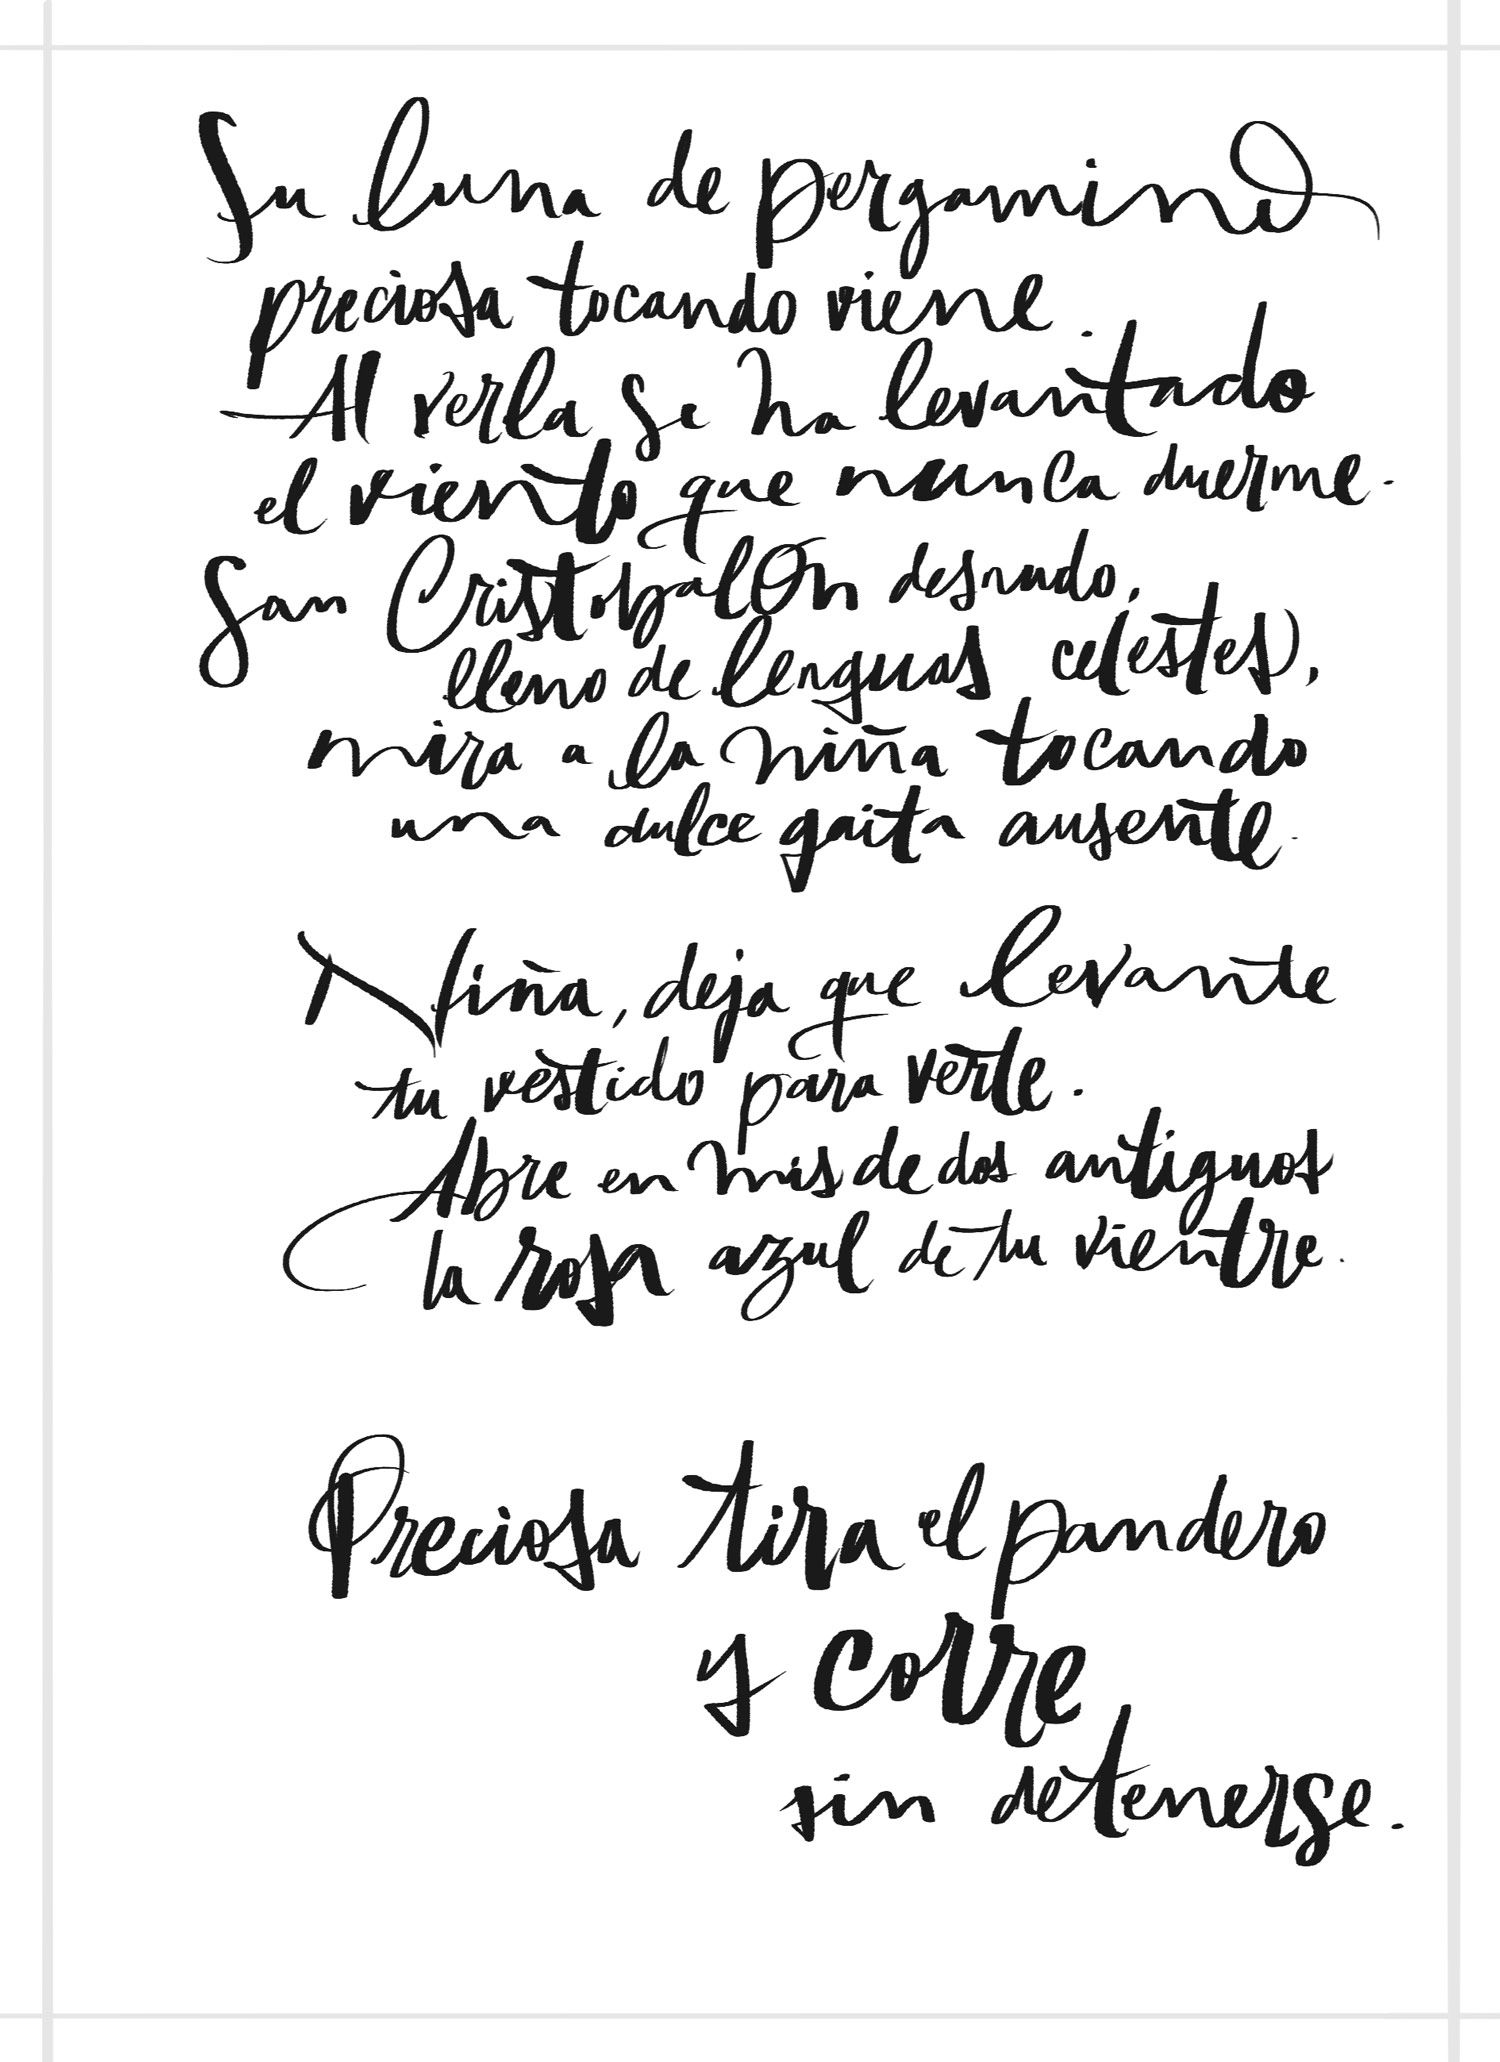 Su luna de pergamino
preciosa tocando viene.
Al verla se ha levantado
el viento que nunca duerme.
San Cristobalón desnudo,
lleno de lenguas celestes,
mira a la niña tocando
una dulce gaita ausente.
Niña, deja que levante
tu vestido para verte.
Abre en mis dedos antiguos
la rosa azul de tu vientre.
Preciosa tira el pandero
y corre
sin detenerse.